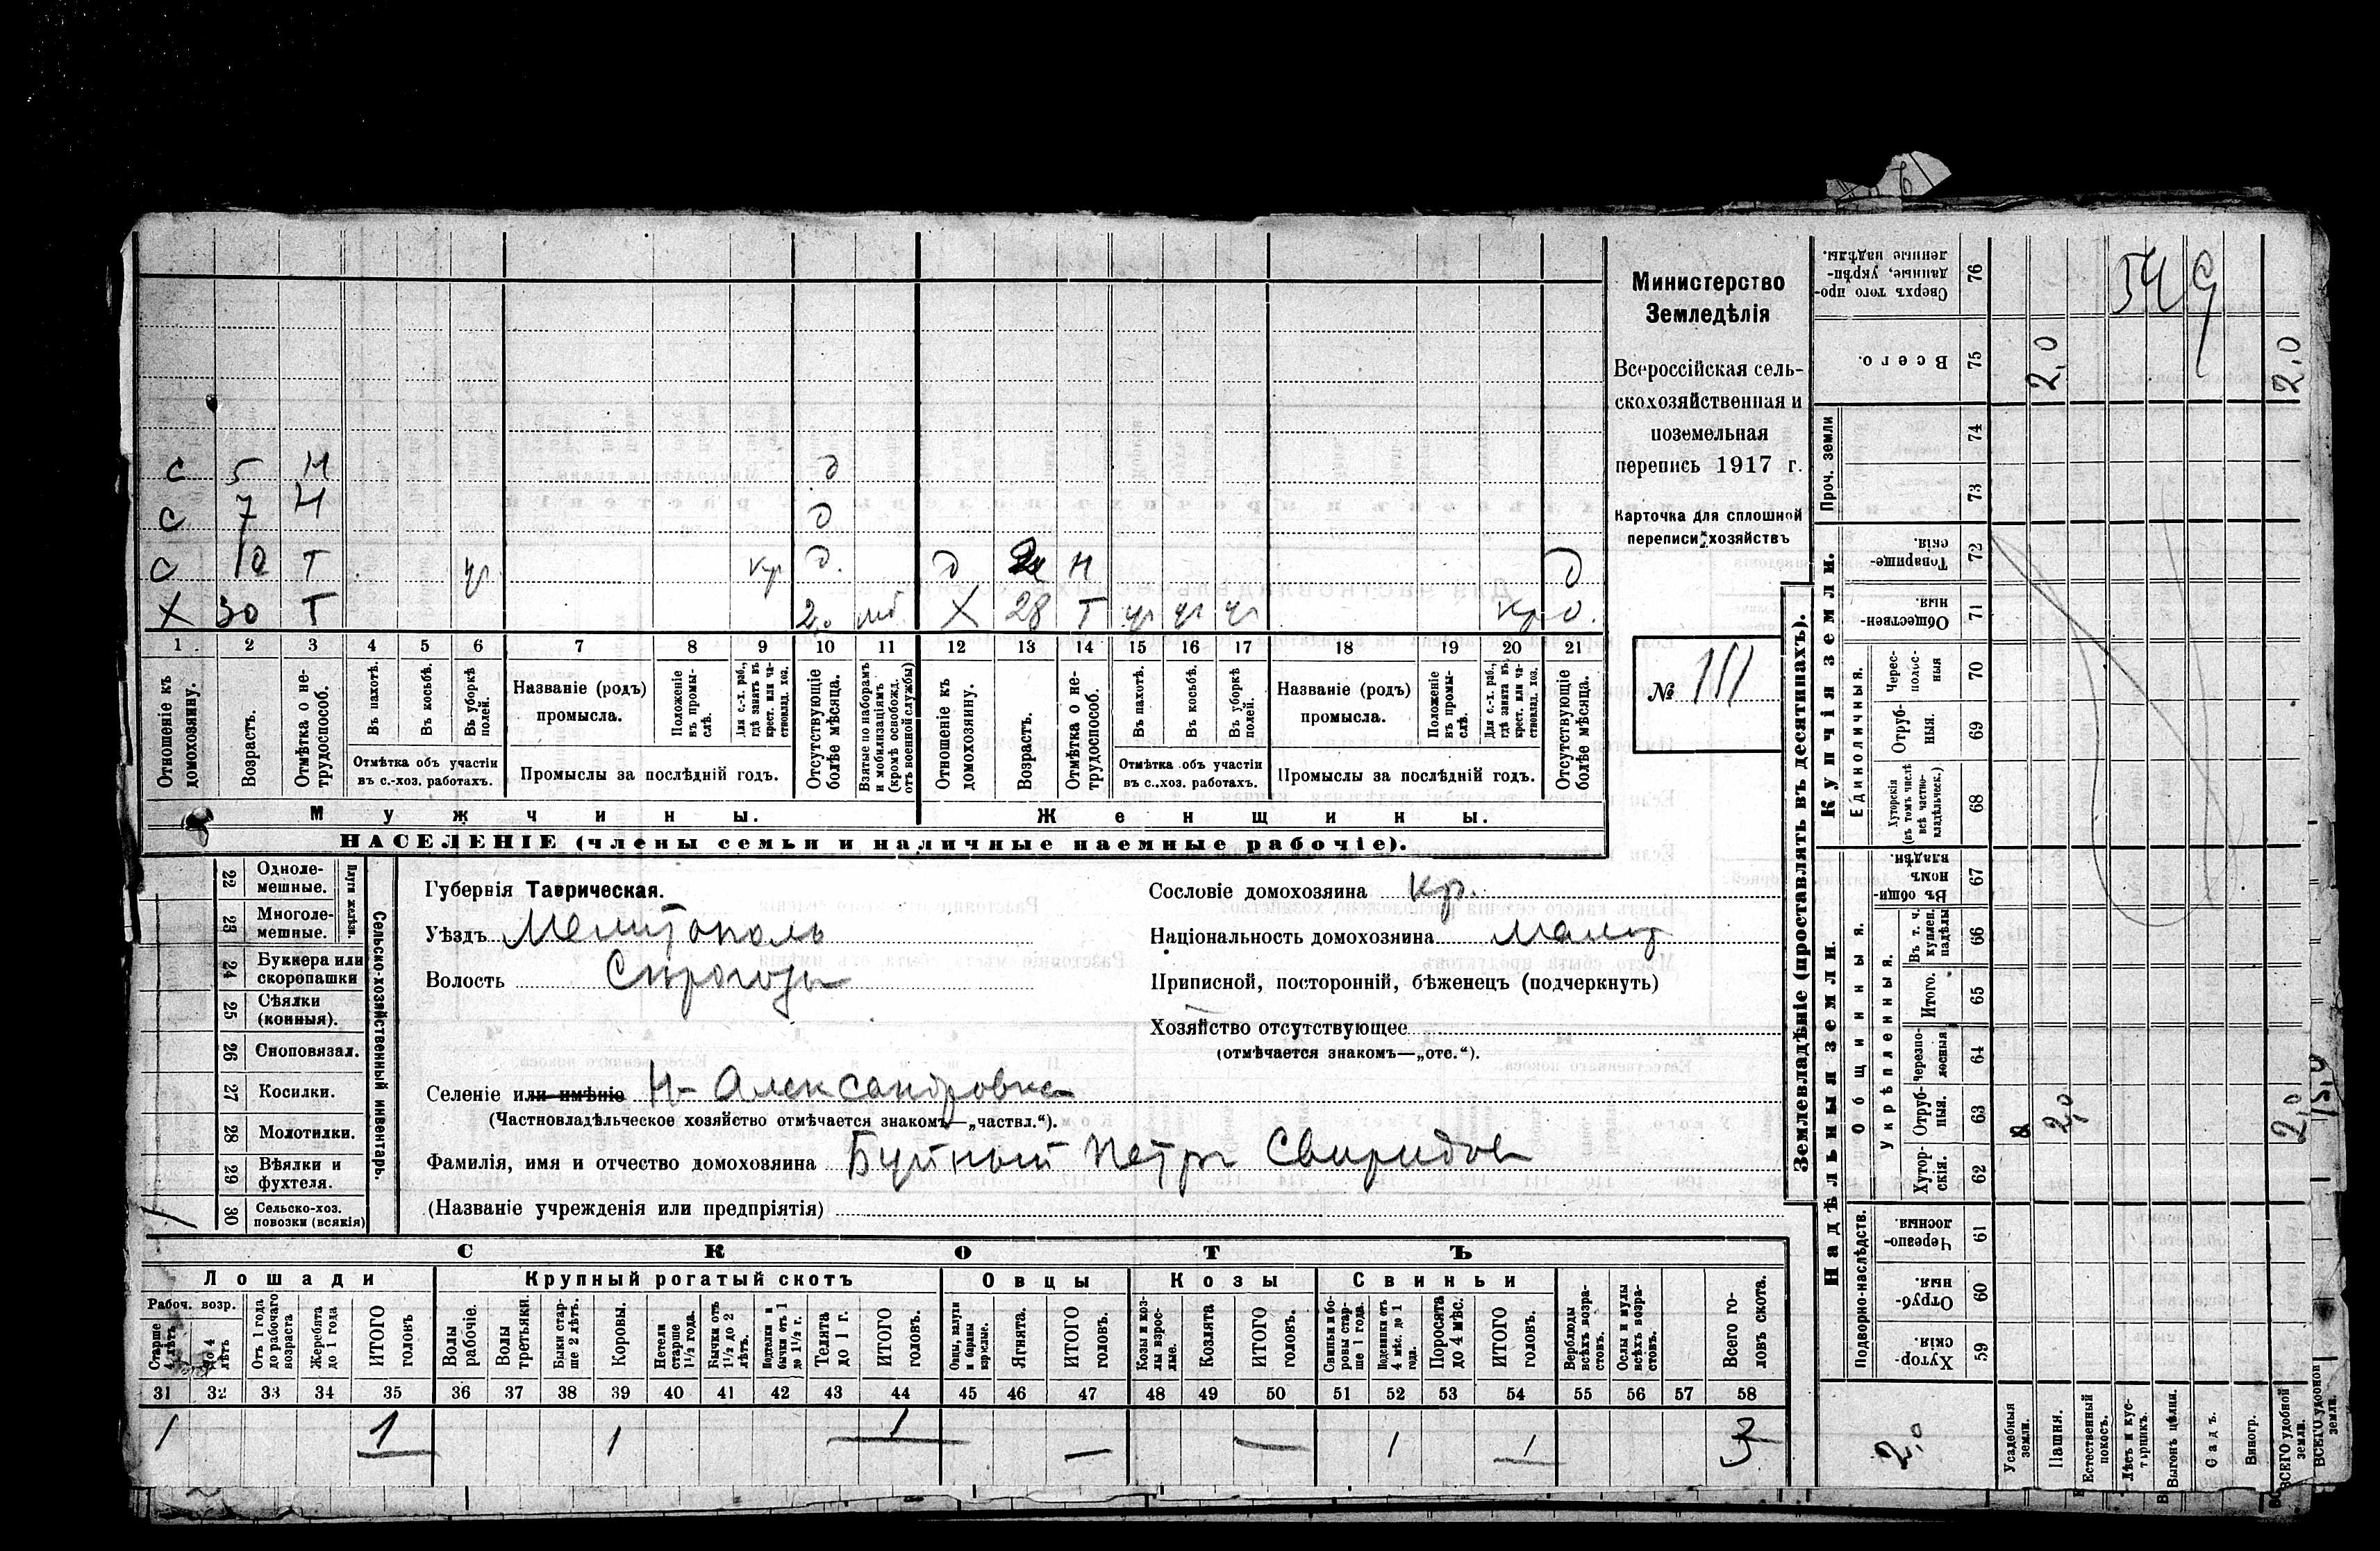 Министерство
Земледѣлія
Всероссійская сель-
скохозяйственная и
поземельная
перепись 1917 г.
Карточка для сплошной
переписи хозяйствъ
№ 111
549
с 5 Н д
с 7 Н д
с 10 Т уг кр д д Н д
Х 30 Т 2,0 мб Х 28 Т уг уг уг кр д.
1 2 3 4 5 6 7 8 9 10 11 12 13 14 15 16 17 18 19 20 21
Отношеніе къ домохозяину.
Возрастъ.
Отмѣтка о не-трудоспособ.
Въ пахотѣ.
Въ косьбѣ.
Въ уборкѣ полей.
Отмѣтка объ участіи
въ с.-хоз. работахъ.
Названіе (родъ)
промысла.
Положеніе въ промы-слѣ.
Для с.-х. раб., гдѣ занятъ въ крест. или ча-ствовлад. хоз.
Промыслы за послѣдній годъ.
Отсутствующіе болѣе мѣсяца.
Взятые по наборамъ и мобилизаціямъ (кромѣ освобожд. отъ военной службы)
Отношеніе къ домохозяину.
Возрастъ.
Отмѣтка о не-трудоспособ.
Въ пахотѣ.
Въ косьбѣ.
Въ уборкѣ полей.
Отмѣтка объ участіи
въ с.-хоз. работахъ.
Названіе (родъ)
промысла.
Положеніе въ промы-слѣ.
Для с.-х. раб., гдѣ занята въ крест. или ча-ствовлад. хоз.
Промыслы за послѣдній годъ.
Отсутствующіе болѣе мѣсяца.
Мужчины. Женщины.
НАСЕЛЕНІЕ (члены семьи и наличные наемные рабочіе).
Сельско-хозяйственный инвентарь.
Плуги желѣзн.
22 Одноле-мешные.
23 Многоле-мешные.
24 Буккера или скоропашки
25 Сѣялки (конныя).
26 Сноповязал.
27 Косилки.
28 Молотилки.
29 Вѣялки и фухтеля.
30 Сельско-хоз. повозки (всякія) 1
Губернія Таврическая.
Уѣздъ Мелитополь
Волость Сирогозы
Селеніе или имѣніе Н-Александровка
(Частновладѣльческое хозяйство отмѣчается знакомъ—„частвл.“).
Фамилія, имя и отчество домохозяина Бутный Петръ Свиридов
(Названіе учрежденія или предпріятія)
Сословіе домохозяина кр.
Національность домохозяина Малор
Приписной, посторонній, бѣженецъ (подчеркнуть)
Хозяйство отсутствующее
(отмѣчается знакомъ—„отс.“).
СКОТЪ
Лошади Крупный рогатый скотъ Овцы Козы Свиньи
Рабоч. возр.
Старше 4 лѣтъ
до 4 лѣтъ
Отъ 1 года до рабочаго возраста
Жеребята до 1 года
ИТОГО головъ
Волы рабочіе.
Волы третьяки.
Быки стар-ше 2 лѣтъ.
Коровы.
Нетели старше 1½ года.
Бычки отъ 1½ до 2 лѣтъ.
Подтелки и бычки отъ 1 до 1½ г.
Телята до 1 г.
ИТОГО головъ.
Овцы, валухи и бараны взрослые.
Ягнята.
ИТОГО головъ.
Козы и коз-лы взрос-лые.
Козлята
ИТОГО головъ.
Свиньи и бо-ровы стар-ше 1 года.
Подсвинки отъ 4 мѣс. до 1 года.
Поросята до 4 мѣс.
ИТОГО головъ.
Верблюды всѣхъ возра-стовъ.
Ослы и мулы всѣхъ возра-стовъ.
Всего го-ловъ скота.
31 32 33 34 35 36 37 38 39 40 41 42 43 44 45 46 47 48 49 50 51 52 53 54 55 56 57 58
1 1 1 1 — — 1 1 3
Землевладѣніе (проставлять въ десятинахъ).
Надѣльныя земли. Купчія земли.
Проч. земли
Подворно-наслѣдств.
Общинныя.
Укрѣпленныя.
Единоличныя.
Хутор-скія. 59
Отруб-ныя. 60
Черезпо-лосныя. 61
Хутор-скія. 62
Отруб-ныя. 63
Черезпо-лосныя 64
Итого. 65
Въ т. ч. куплен. надѣлы 66
Въ общин-номъ владѣн. 67
Хуторскія (въ томъ числѣ всѣ частно-владѣльческ.) 68
Отруб-ныя. 69
Черес-полос-ныя 70
Обществен-ныя. 71
Товарище-скія. 72
73
74
Всего. 75
Сверхъ того про-данные, укрѣп-ленные надѣлы. 76
Усадебныя земли.
Пашня.
Естественный покосъ.
Лѣсъ и кус-тарникъ.
Выгонъ цѣлина.
Садъ.
Виногр.
ВСЕГО удобной земли.
ВСЕГО удобной земли.
2,0
2,0
2,0
2,0
2,0